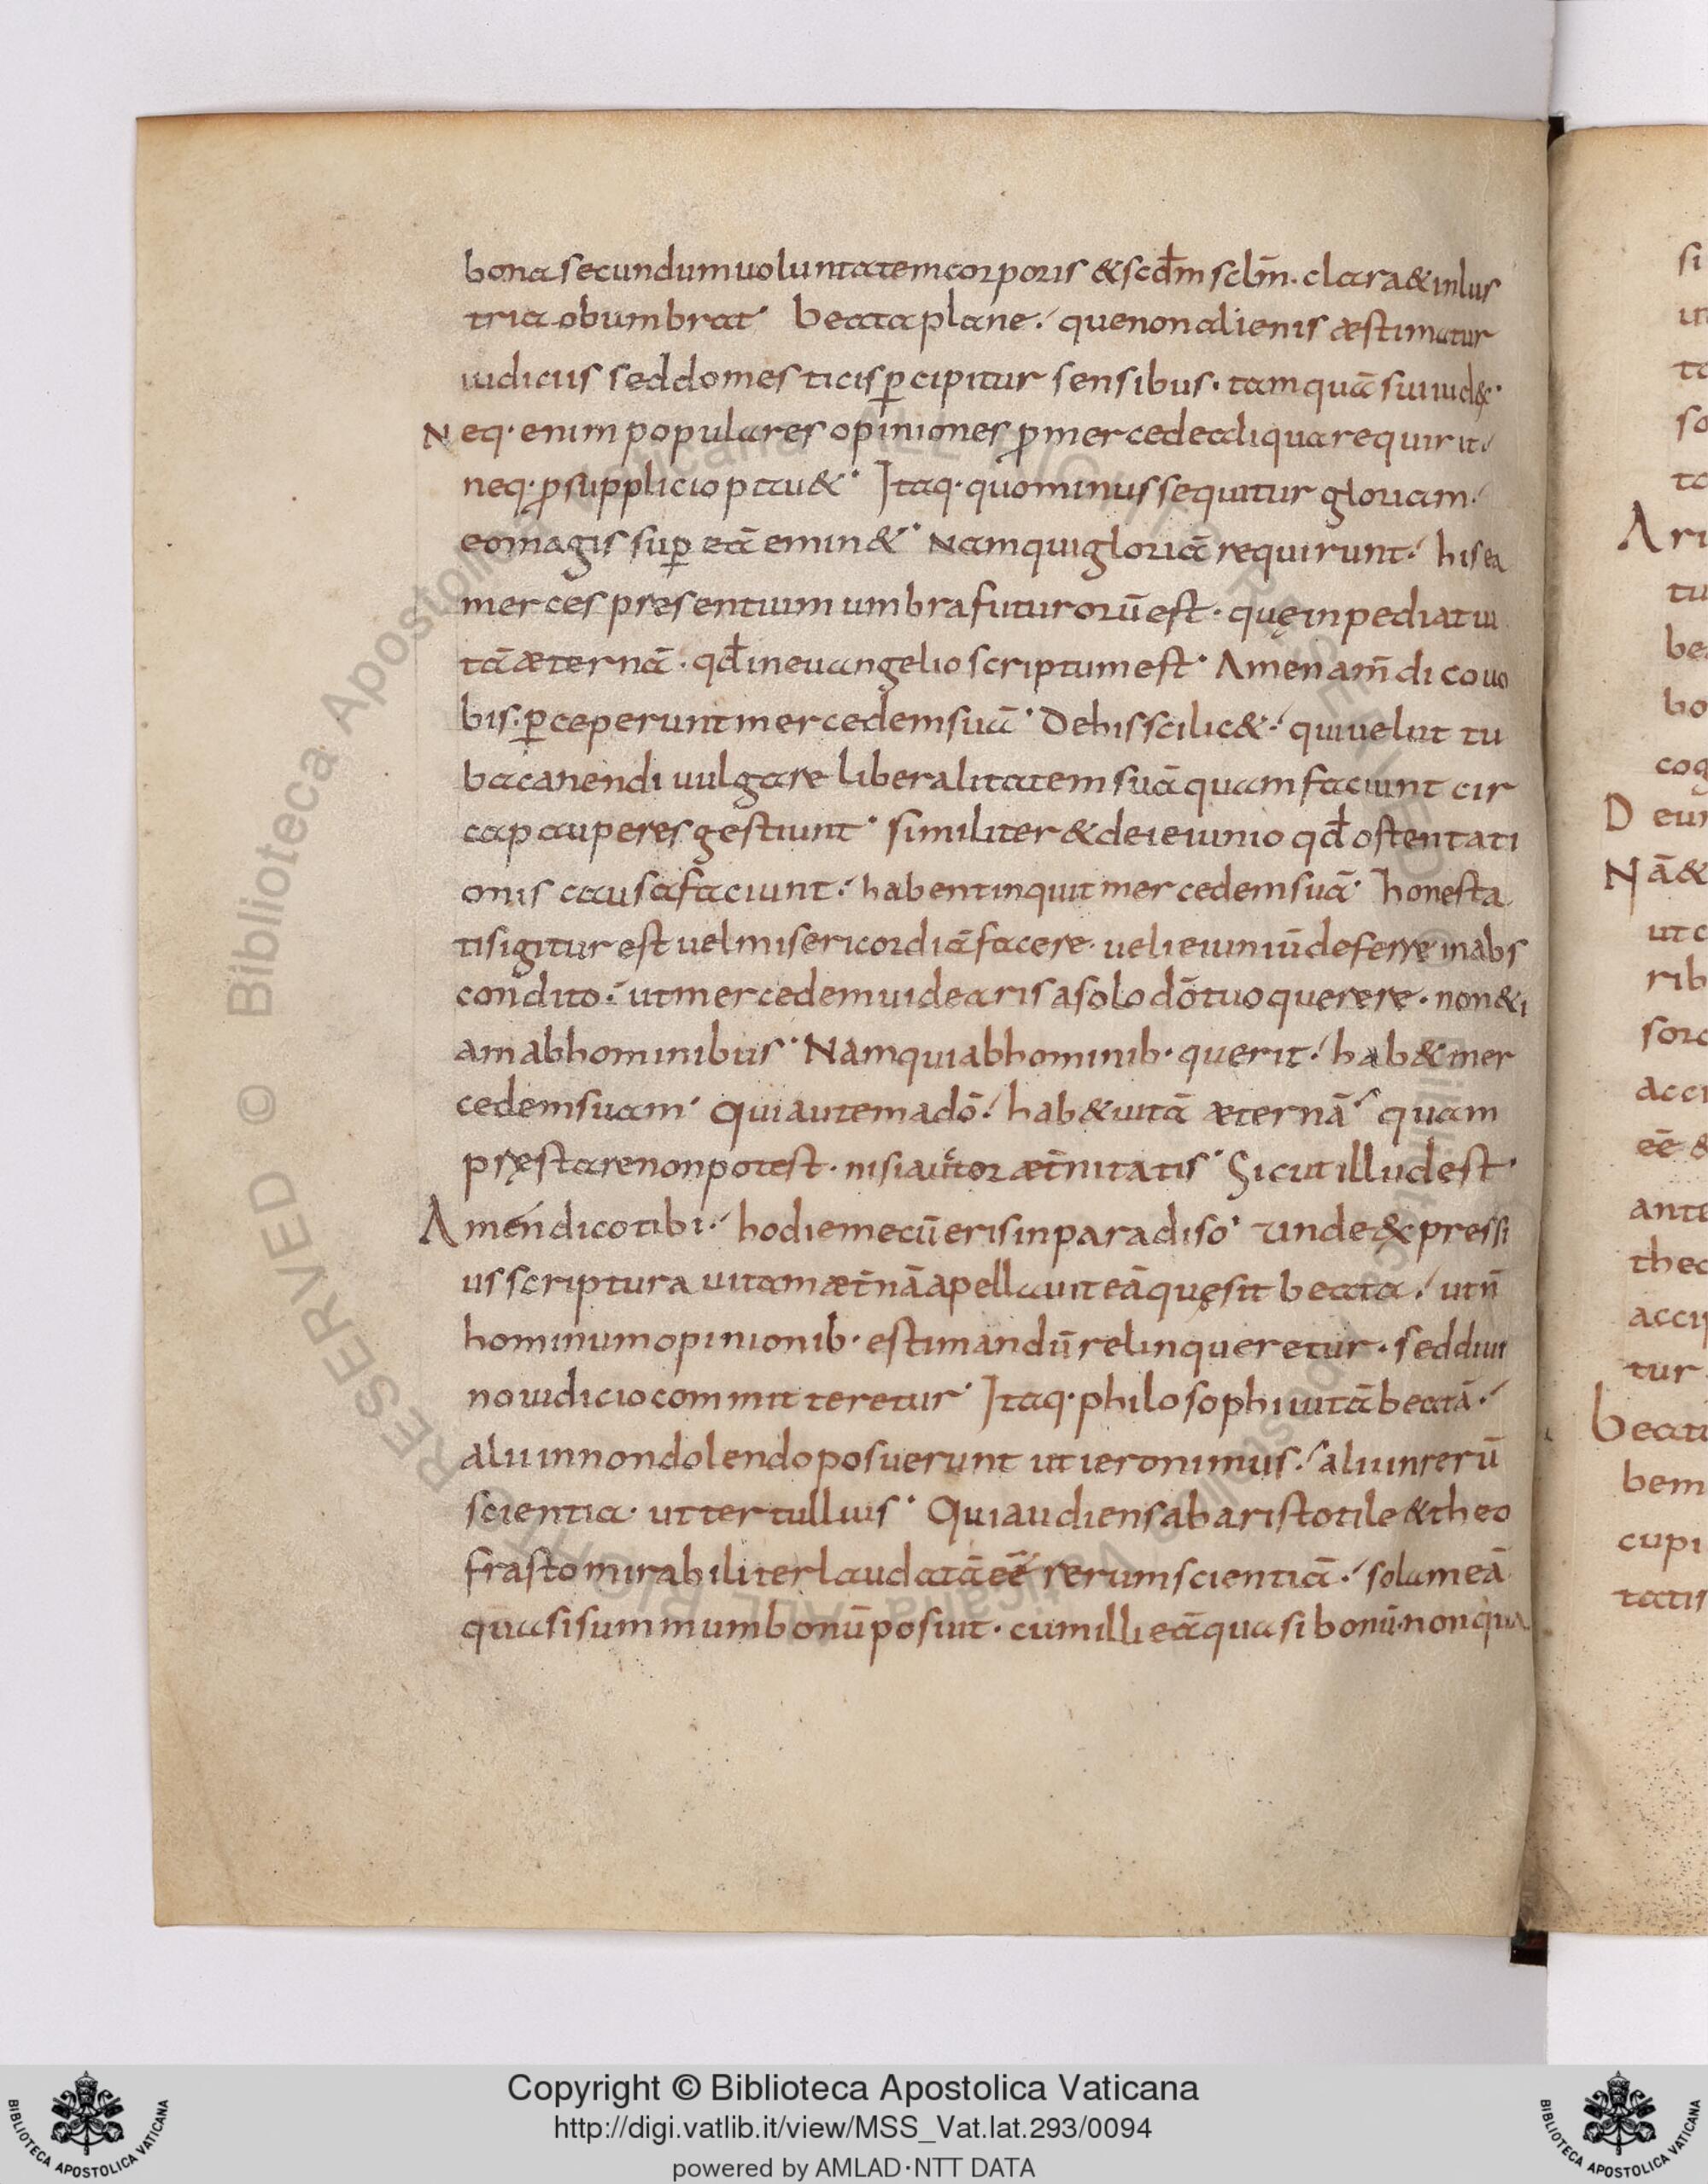 bona secundum uoluntatem corporis & scdm̄ sclm̄. clara & inlus
tria obumbrat· beata plane. que non alienis æstimatur
iudiciis sed domesticis ꝑcipitur sensibus. tamquā sui iudex·
Neq· enim populares opiniones ꝓ mercede aliqua requirit
neq· ꝓ supplicio pau&· Itaq· quo minus sequitur gloriam.
eo magis suꝑ eā emin&· Nam qui gloriā requirunt. his ea
merces presentium umbra futurorū est. quę inpediat ui
tā æternā. qd̄ in euangelio scriptum est· Amen am̄ dico uo
bis. ꝑceperunt mercedem suā· De his scilic&. qui uelut tu
ba canendi uulgare liberalitatem suā quam faciunt cir
ca pauperes gestiunt· similiter & de ieiunio qd̄ ostentati
onis causa faciunt. habent inquit mercedem suā· honesta
tis igitur est uel misericordiā facere. uel ieiuniū deferre in abs
condito. ut mercedem uidearis a solo dō tuo querere. non &i
am ab hominibus· Nam qui ab hominib· querit. hab& mer
cedem suam· Qui autem a dō. hab& uitā æternā quam
pręstare non potest. nisi auctor æt̄nitatis· Sicut illud est·
Amen dico tibi. hodie mecū eris in paradiso· unde expressi
us scriptura uitam æt̄nā apellauit eā quę sit beata. ut n̄
hominum opinionib· estimandū relinqueretur. sed diui
no iudicio committeretur· Itaq· philosophi uitā beatā.
alii in non dolendo posuerunt ut ieronimus. alii in rerū
scientia. ut tertullius· Qui audiens ab aristotile & theo
frasto mirabiliter laudatā eē rerum scientiā. solam eā
quasi summum bonū posuit. cum illi eā quasi bonū. non qua
Copyright © Biblioteca Apostolica Vaticana
http://digi.vatlib.it/view/MSS_Vat.lat.293/0094
powered by AMLAD·NTT DATA